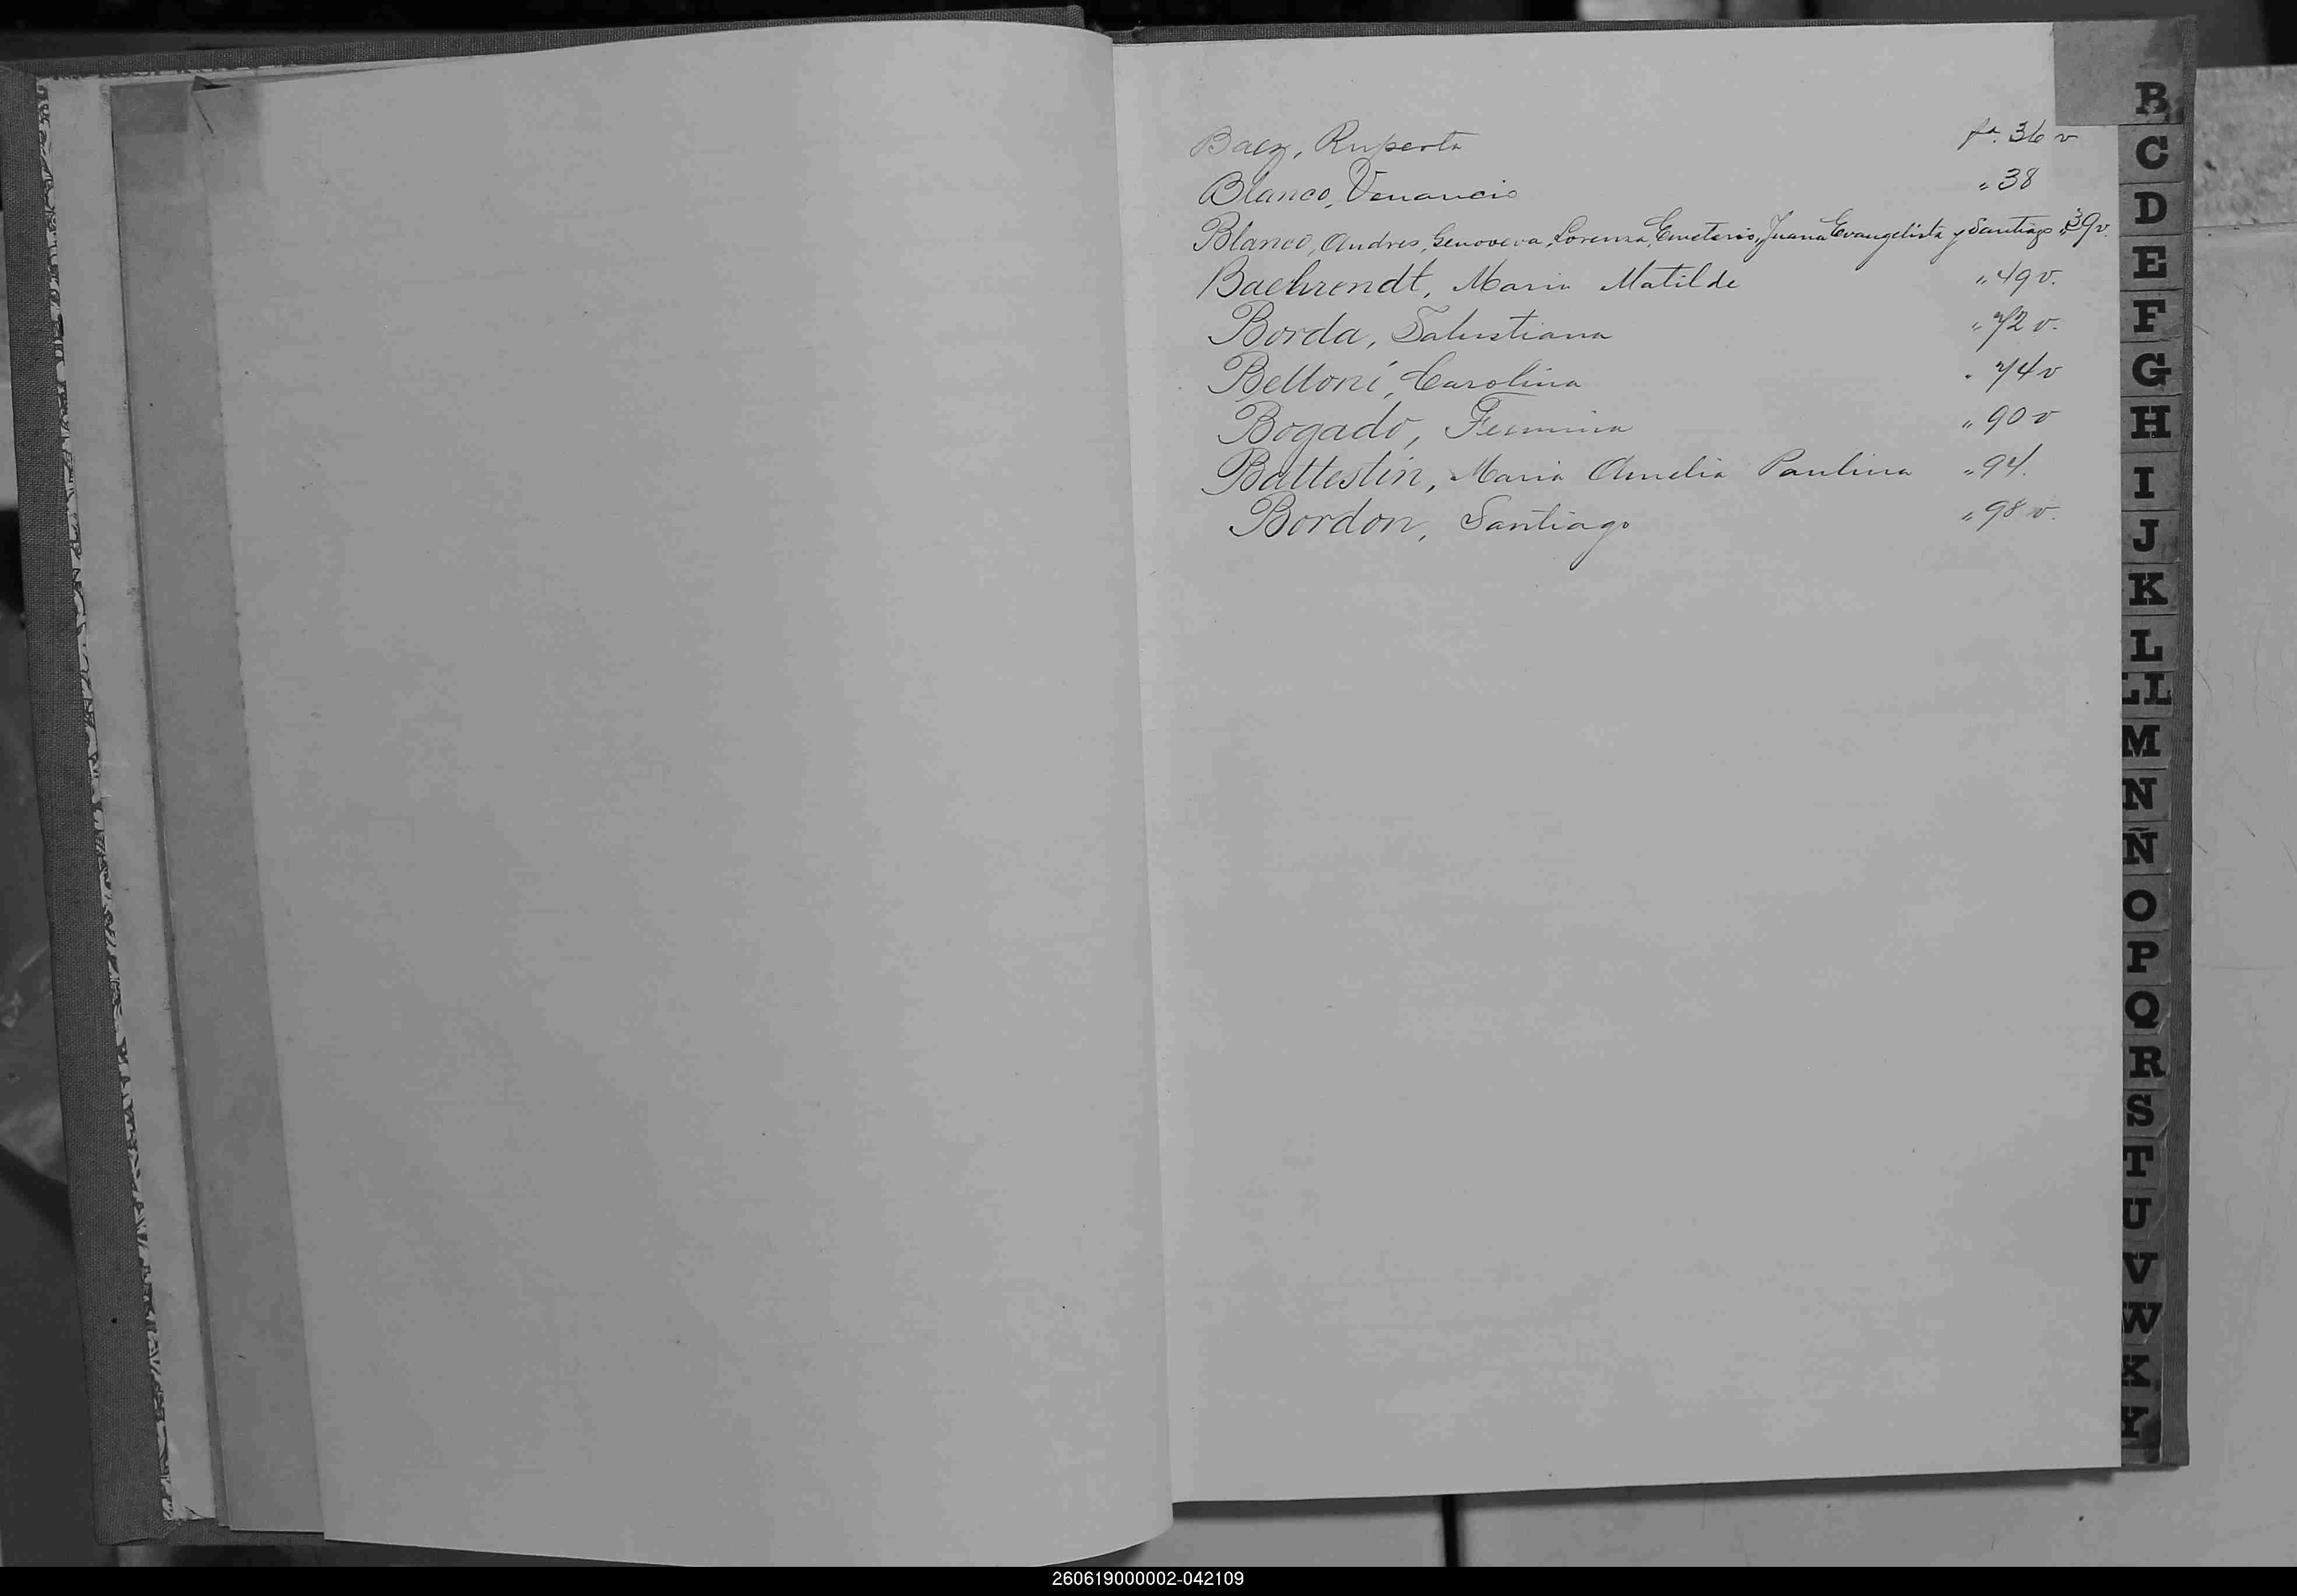 Baez, Ruperta fa. 36 v
Blanco, Venancio " 38
Blanco, Andres, Genoveva, Lorenza, Emeterio, Juana Evangelista y Santiago " 39 v.
Baehrendt, Maria Matilde " 49 v.
Borda, Salustiana " 72 v.
Belloni, Carolina " 74 v
Bogado, Fermina " 90 v
Battestin, Maria Amelia Paulina " 94.
Bordon, Santiago " 98 v.
B
C
D
E
F
G
H
I
J
K
L
LL
M
N
Ñ
O
P
Q
R
S
T
U
V
W
X
Y
260619000002-042109